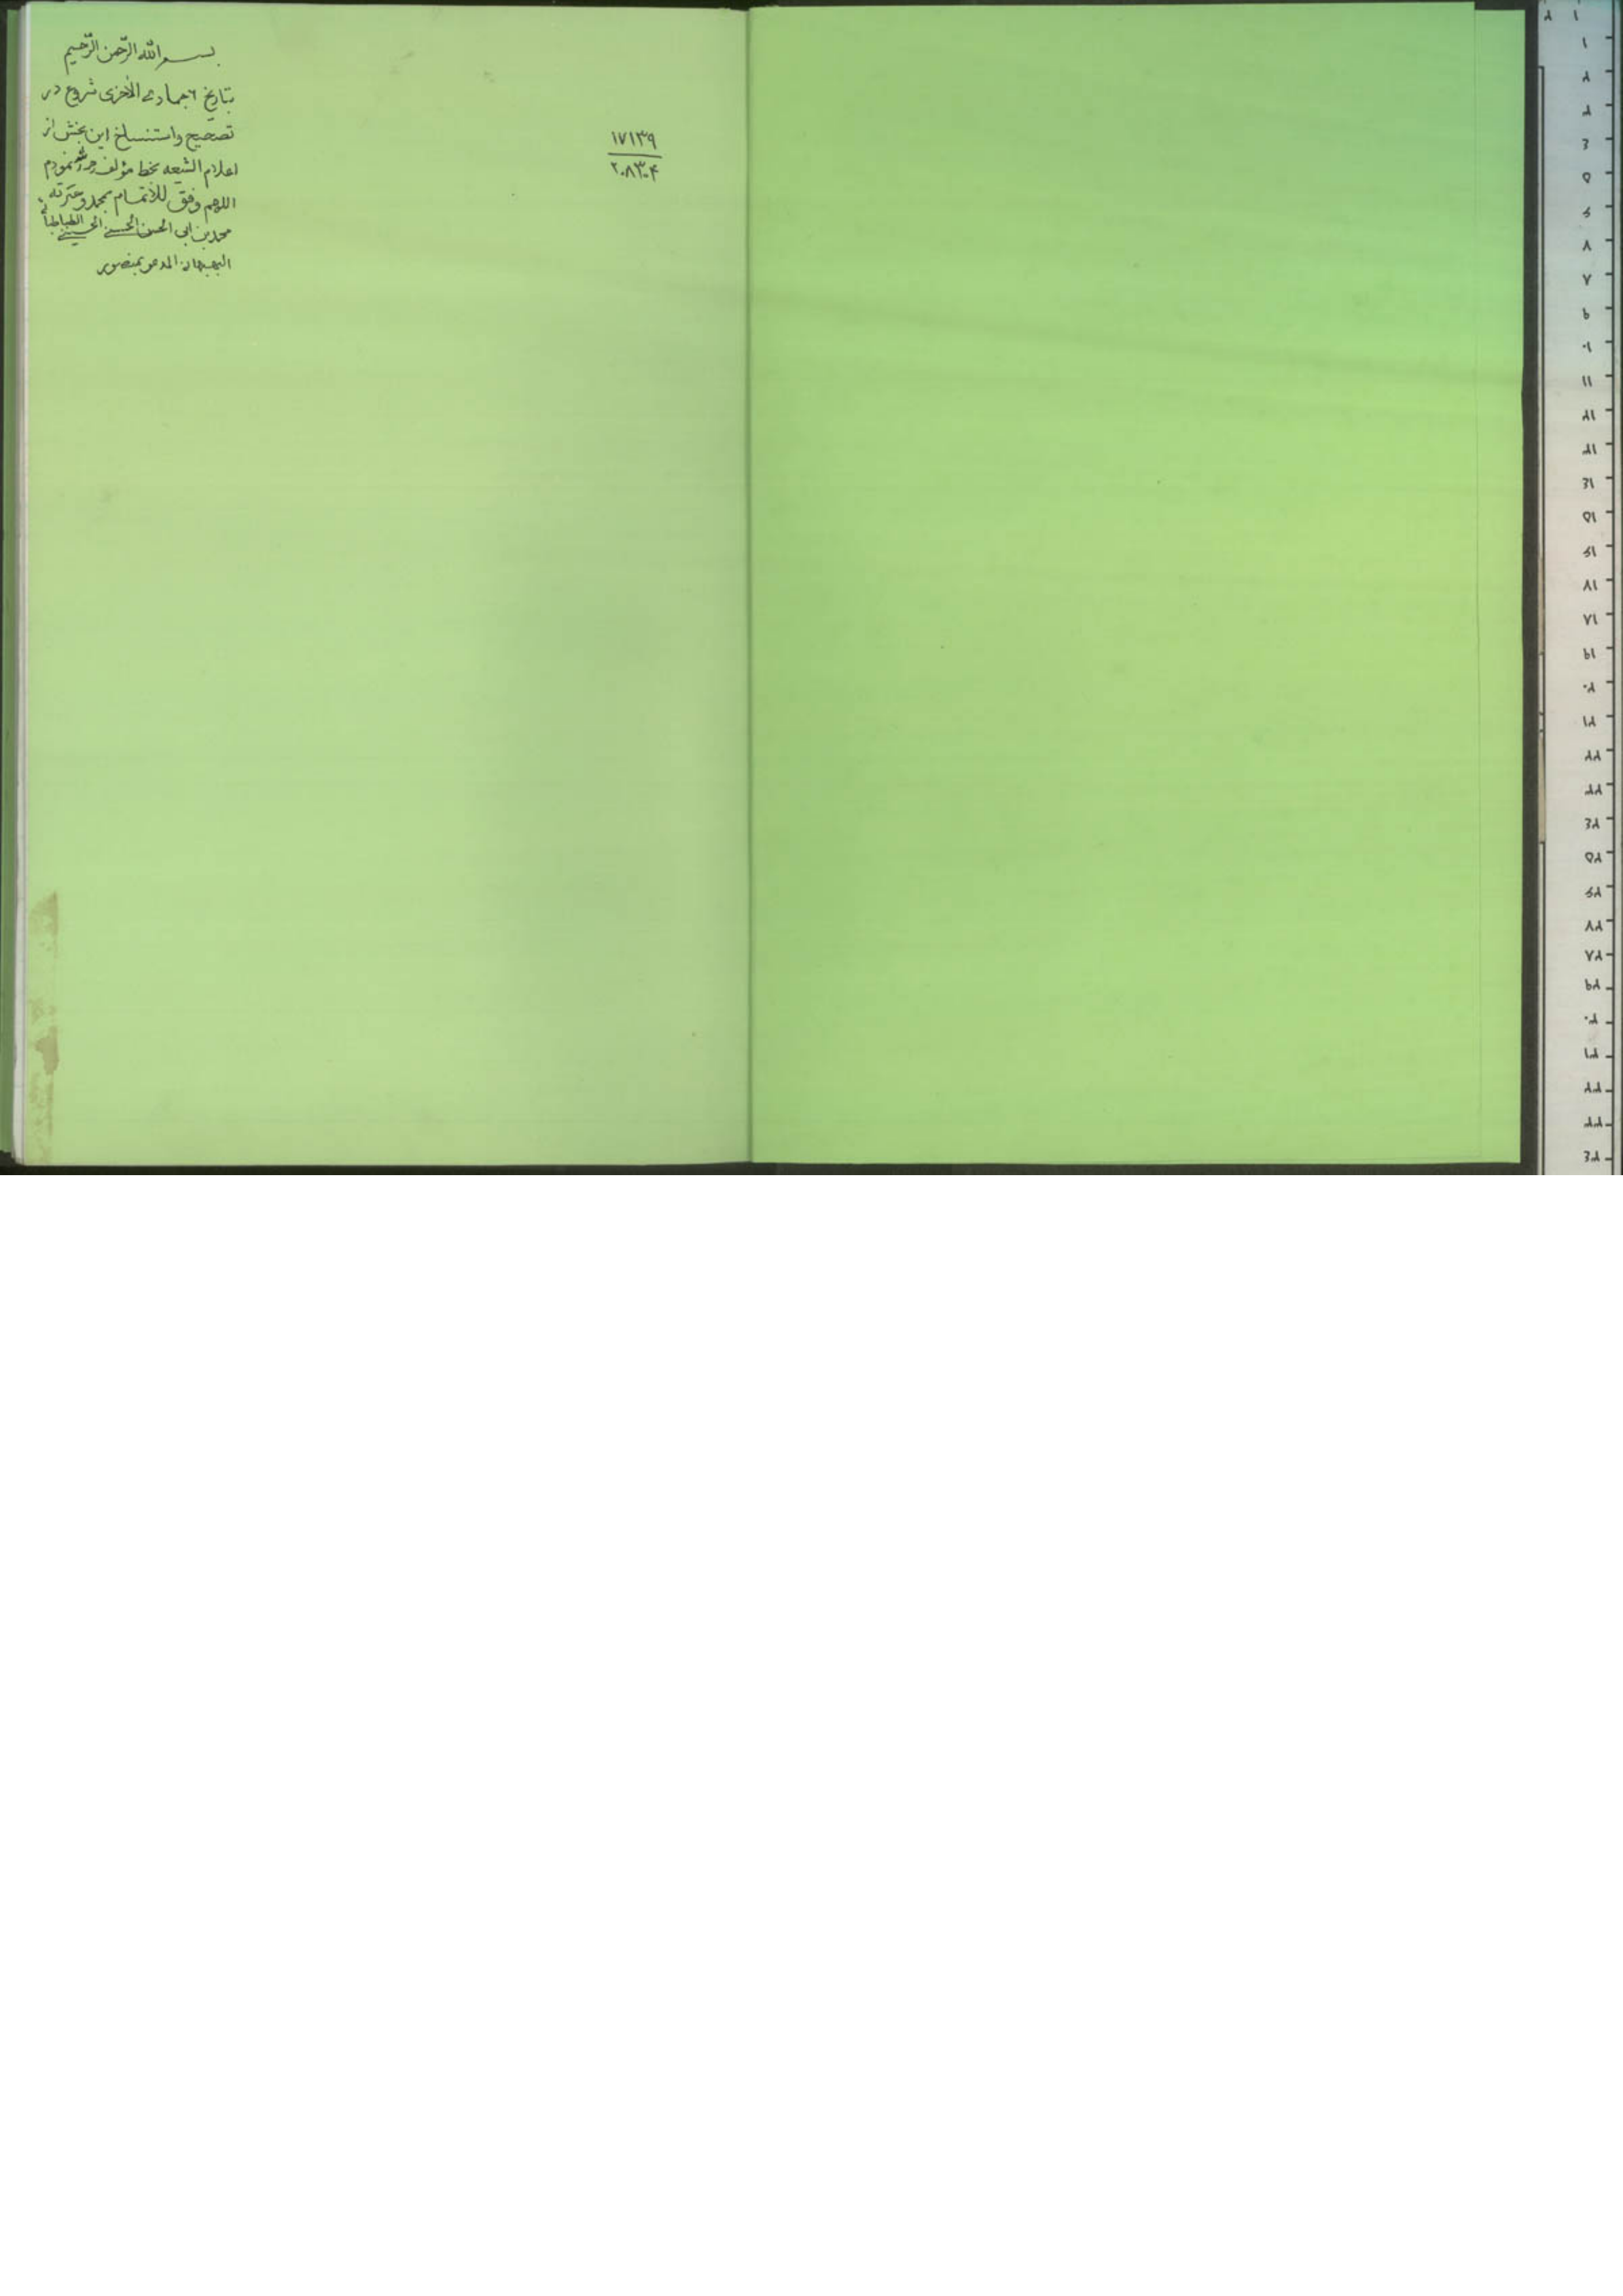 بسم الله الرّحمن الرّحیم
بتاریخ ٦ جمادی الأخری شروع در
تصحیح و استنساخ این بخش از
اعلام الشیعه بخط مؤلف نمودم
اللهم وفق للأتمام بمحمد وعترته
محمد بن ابی الحسن الحسنی الحسینی الطباطبائی
البهبهانی المدعو بمنصور
۱۷۱۳۹
۲۰۸۳۰۴